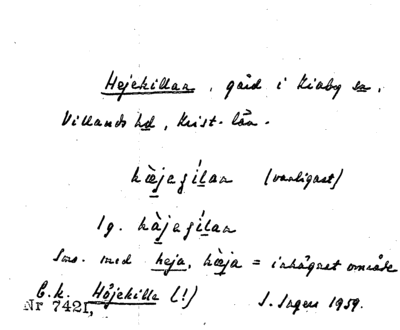 Hejekillan, gård i Kiaby sn,
Villands hd, Krist. län.
hæ̀jegílan (vanligast)
Ig. hàjegílan
Sms. med heja, hæja = inhägnat område
E.k. Höjekilla (!) J. Ingers 1959.
Nr 7421,